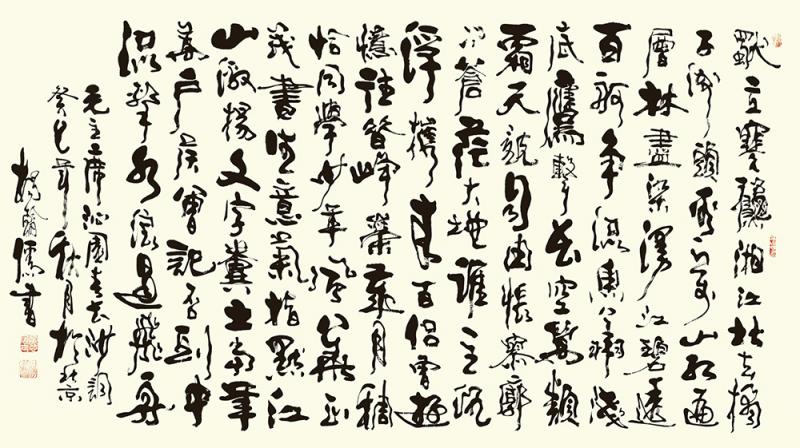 獨立寒秋湘江北去橘
子洲頭看萬山紅遍
層林盡染漫江碧透
百舸争流魚翔淺
底鷹擊長空萬類
霜天競自由悵寥廓
問蒼茫大地誰主沉
浮攜來百侣曾遊
憶往昔崢嶸歲月稠
恰同學少年風華正
茂書生意氣指點江
山激揚文字糞土當年
萬户侯曾記否到中
流擊水浪遏飛舟
毛主席沁園春長沙詞
癸巳年秋月於北京
楊儒書